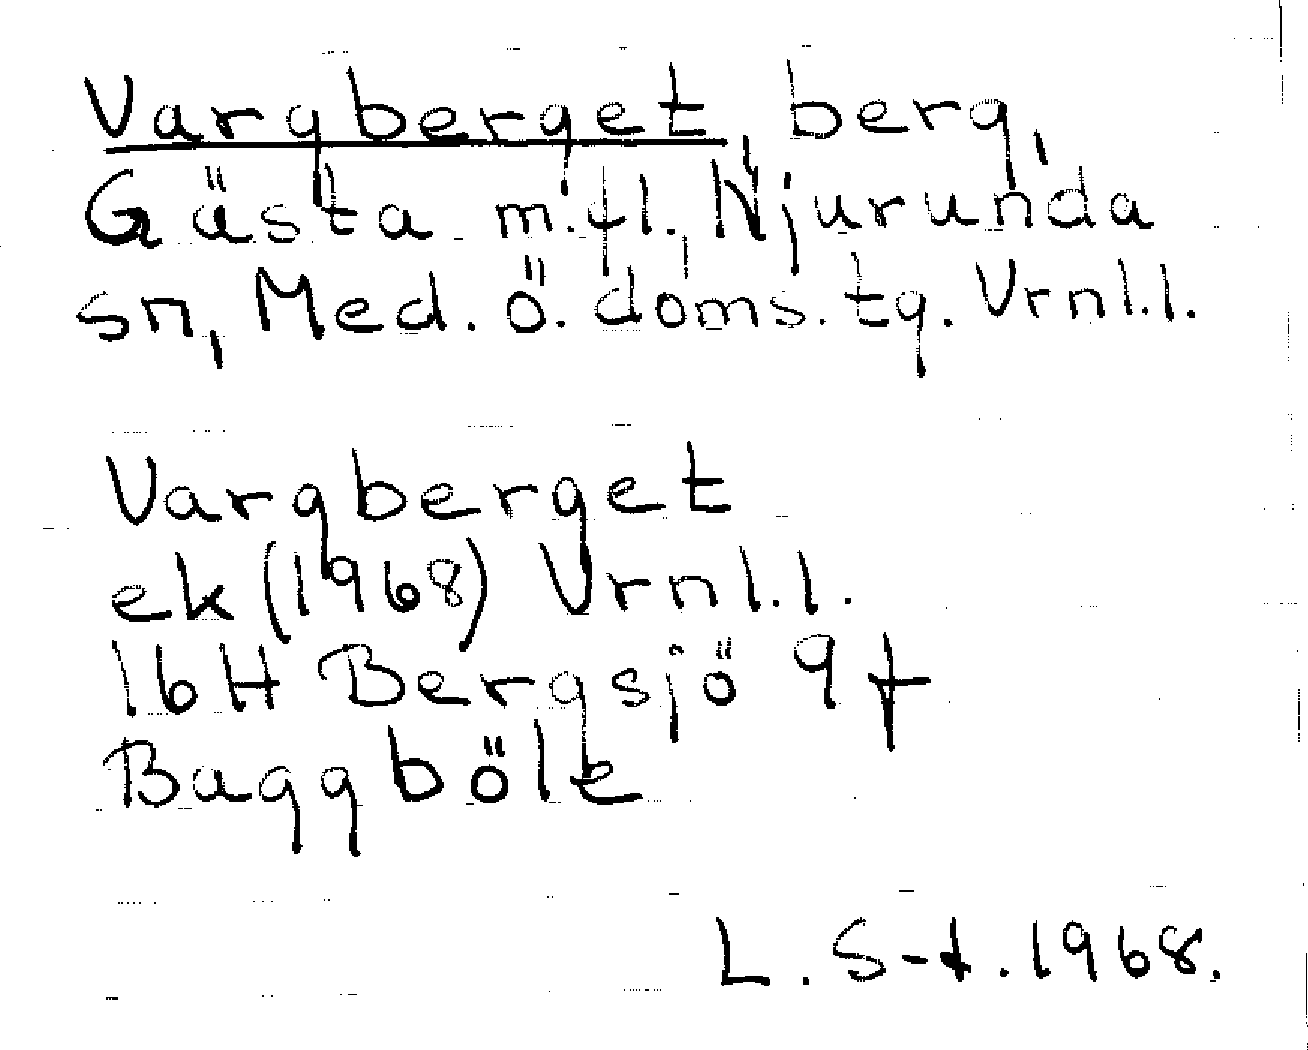 Vargberget, berg,
Gästa m.fl., Njurunda
sn, Med. ö. doms. tg. Vrnl.l.
Vargberget
ek (1968) Vrnl.l.
16H Bergsjö 9f
Baggböle
L. S-t. 1968.